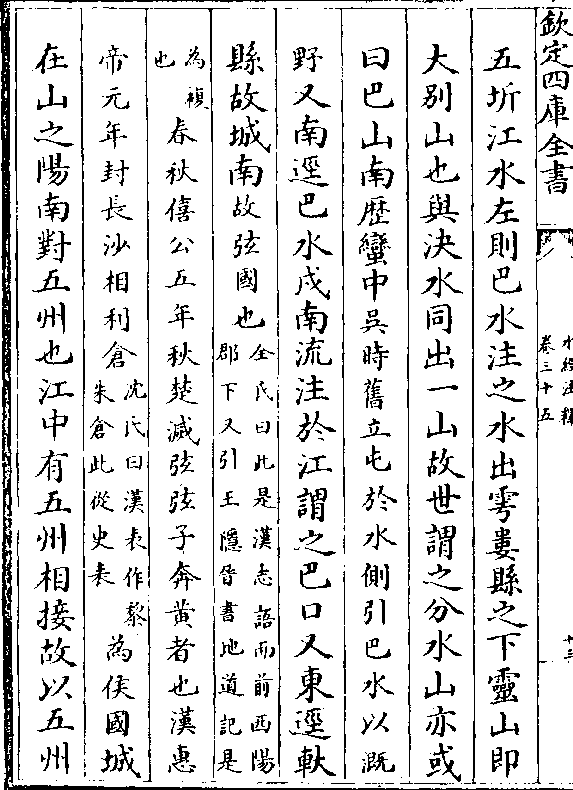 欽定四庫全書
水經注釋
卷三十五
十三
五圻江水左則巴水注之水出雩婁縣之下靈山即
大別山也與決水同出一山故世謂之分水山亦或
曰巴山南歷蠻中吳時舊立屯於水側引巴水以溉
野又南逕巴水戍南流注於江謂之巴口又東逕軑
縣故城南故弦國也全氏曰此是漢志語而前西陽
郡下又引王隱晉書地道記是
為複
也
春秋僖公五年秋楚滅弦弦子奔黃者也漢惠
帝元年封長沙相利倉沈氏曰漢表作黎
朱倉此從史表
為侯國城
在山之陽南對五州也江中有五州相接故以五州